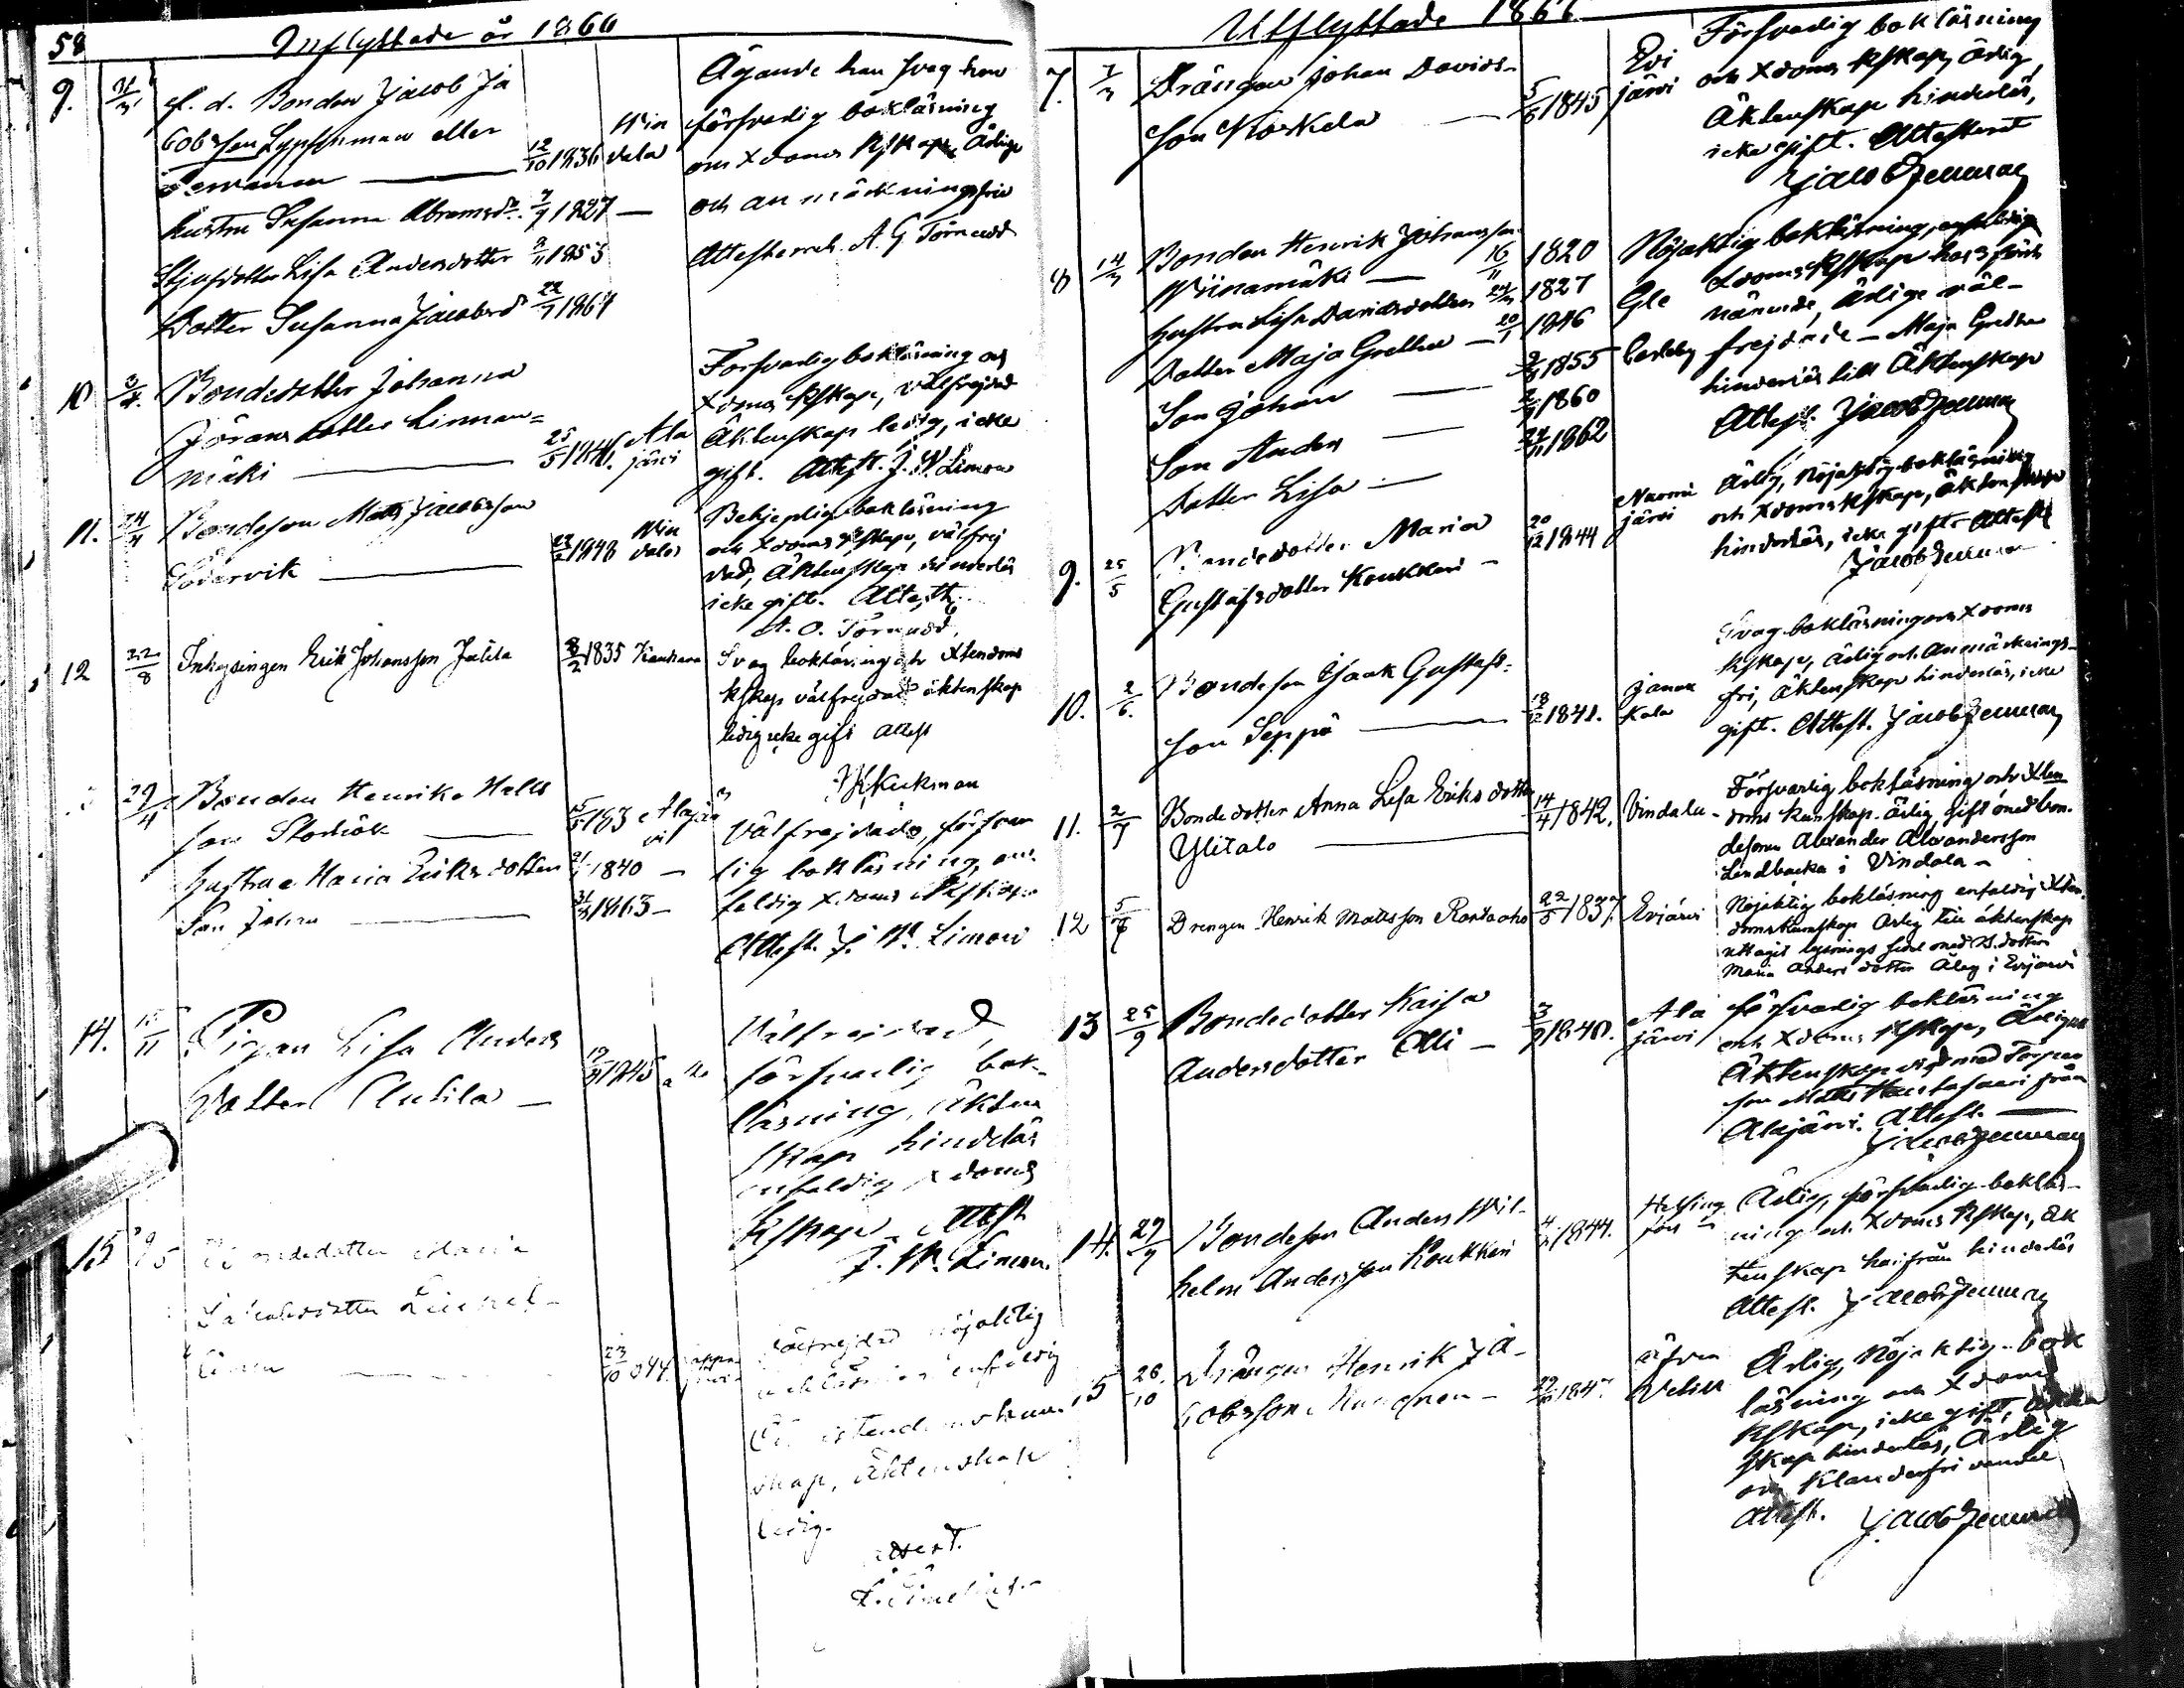 58
Inflyttade år 1866
9. 21/3 f. d. Bonden Jacob Ja
cobsson
eller
12/10 1836
Win
dala
Hustru Susanna Abramsdr 7/9 1827 —
Styfdotter Lisa Andersdotter 9/11 1853
Dotter Susanna Jacobsdr 22/7 1864
Ägande han svag hon
försvarlig bokläsning
om Xdoms kskap, Ärliga
och anmärkningsfria
Attesterad. A. G. Törnudd
10 3/4. Bondedotter Johanna
Göransdotter Linnan=
mäki — 25/5 1846. Ala
järvi
Försvarlig bokläsning och
Xdoms kskap, välfrejdad
Äktenskap ledig, icke
gift. Attest. J. W. Limon
11. 24/4 Bondeson Matts Jacobsson
Södervik — 23/2 1848 Win
dala
Behjeplig bokläsning
och Xdoms kskap, välfrej
dad, Äktenskap hinderlös
icke gift. Attest.
A. G. Törnudd.
12 22/8 Inhysingen Erik Johansson Julila 8/2 1835 Kauhava
Svag bokläsning och Xtendoms
kskap välfrejdad äktenskap
ledig icke gift Attest
29/4 Bonden Henrik Matts
son — 15/5 183 Alajär
vi
Hustru Maria Eriksdotter 21/1 1840 —
Son Johan — 1863 —
Välfrejdade, försvar
lig bokläsning, en-
faldig Xdoms kskap
Attest. J. W. Limon
14. 15/11 Pigan Lisa Anders
dotter Antila — 1845
Välfrejdad,
försvarlig bok-
läsning, Äkten
skap hinderlös
enfaldig Xdoms
kskap. Attest
J. W. Limon.
15 9/5 Bondedotter Maria
23/10 1844 Lappa
järvi
Välfrejdad nöjaktig
bokläsning enfaldig
Christendomskun
skap, Äktenskap
ledig.
Utflyttade 1866
7. 7/3 Drängen Johan Davids-
son Koskela — 5/6 1845 Evi
järvi
Försvarlig bokläsning
och Xdoms kskap, ärlig,
Äktenskap hinderlös,
icke gift. Attesterat
Jacob Jenman
8 14/3 Bonden Henrik Johansson
Wiinamäki — 16/11 1820
Hustru Lisa Davidsdotter 24/3 1827
Dotter Maja Gretha — 20/1 1846
Son Johan — 1855
Son Anders — 1860
Dotter Lisa — 1862
Gle
Carleby
Nöjaktig bokläsning, enfaldig
Xdoms kskap
ärliga väl-
frejdade — Maja Gretha
hinderlös till Äktenskap
Attest. Jacob Jenman
9. 25/5 Bondedotter Maria
Gustafsdotter Koukkari — 20/12 1844
Nurmi
järvi
Ärlig, Nöjaktig bokläsning
och Xdoms kskap, äktenskap
hinderlös, icke gift. Attest
Jacob Jenman
10. 2/6. Bondeson Isaak Gustafs=
son Seppä — 18/12 1841. Janak
kala
Svag bokläsning och Xdoms
kskap, Ärlig och Anmärknings-
fri, Äktenskap hinderlös, icke
gift. Attest. Jacob Jenman
11. 2/7 Bondedotter Anna Lisa Eriksdotter
Ylitalo — 14/4 1842. Vindala -
Försvarlig bokläsning och Xten
doms kunskap. Ärlig, Gift med bon.
desonen Alexander Alexandersson
Lindbacka i Vindala -
12 5/9 Drengen Henrik Mattsson Rantaaho 22/5 1837. Evijärvi
Nöjaktig bokläsning enfaldig Xten.
doms kunskap Ärlig till äktenskap
uttagit lysnings sedel med B.dotter
Maria Anders dotter Ålag i Evijärvi
13 25/9 Bondedotter Kaisa
Andersdotter Olli — 3/9 1840. Ala
järvi
Försvarlig bokläsning
och Xdoms kskap, Ärlig
Äktenskap med Torpare
son Matts från
Alajärvi. Attest. —
Jacob Jenman
14. 29/9 Bondeson Anders Wil-
helm Andersson Koukkari 1844. Helsing
fors
Ärlig, försvarlig bokläs-
ning och Xdoms kskap, äk
tenskap härifrån hinderlös
Attest. Jacob Jenman
15 26/10 Drängen Henrik Ja-
cobsson — 184
Äfven
Ärlig, Nöjaktig bok
läsning och Xdoms
kskap, icke gift, Äkten
skap hinderlös, Ärlig
och klanderfri vandel
Attest. Jacob Jenman